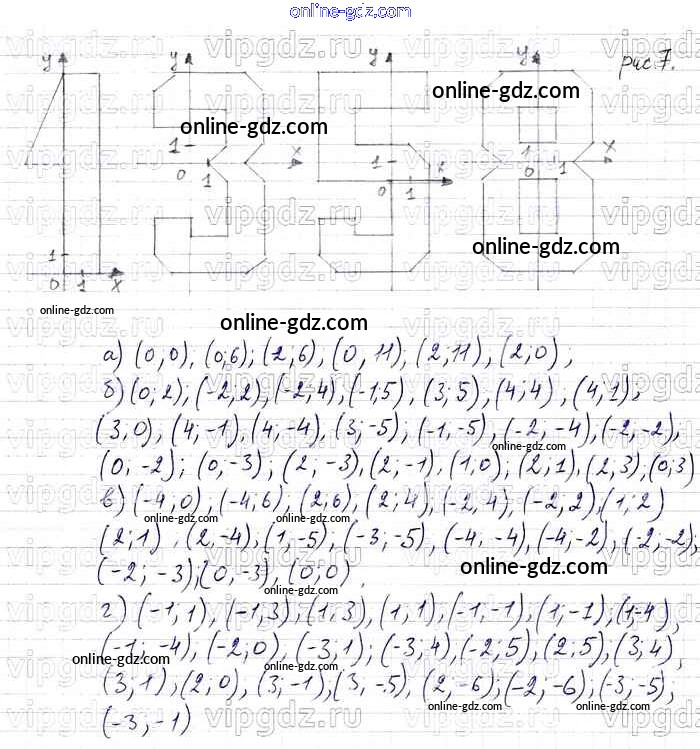 online-gdz.com
рис. 7.
y y y y
online-gdz.com
online-gdz.com
1 x 1 x 1 x
0 1 0 1 0 1
online-gdz.com
1
0 1 x
online-gdz.com
online-gdz.com
а) (0;0), (0;6); (2;6); (0, 11), (2,11), (2;0),
б) (0;2); (-2,2), (-2;4), (-1;5), (3;5), (4;4), (4,1),
(3,0), (4;-1), (4,-4), (3;-5); (-1,-5), (-2,-4), (-2;-2),
online-gdz.com
(0;-2); (0,-3); (2,-3), (2;-1), (1,0); (2,1), (2,3), (0,3)
в) (-4;0), (-4;6), (2;6), (2;4), (-2,4), (-2,2), (1,2)
online-gdz.com online-gdz.com
(2;1), (2,-4), (1,-5), (-3;-5), (-4,-4), (-4;-2), (-2,-2);
(-2;-3); (0,-3), (0;0)
online-gdz.com
г) (-1,1), (-1;3), (1;3), (1;1), (-1;-1), (1;-1); (1;-4),
(-1;-4), (-2;0), (-3;1); (-3;4), (-2;5), (2;5), (3,4),
online-gdz.com online-gdz.com
(3,1), (2,0), (3;-1), (3,-5), (2,-6); (-2;-6); (-3;-5);
online-gdz.com online-gdz.com
(-3;-1)
vipgdz.ru